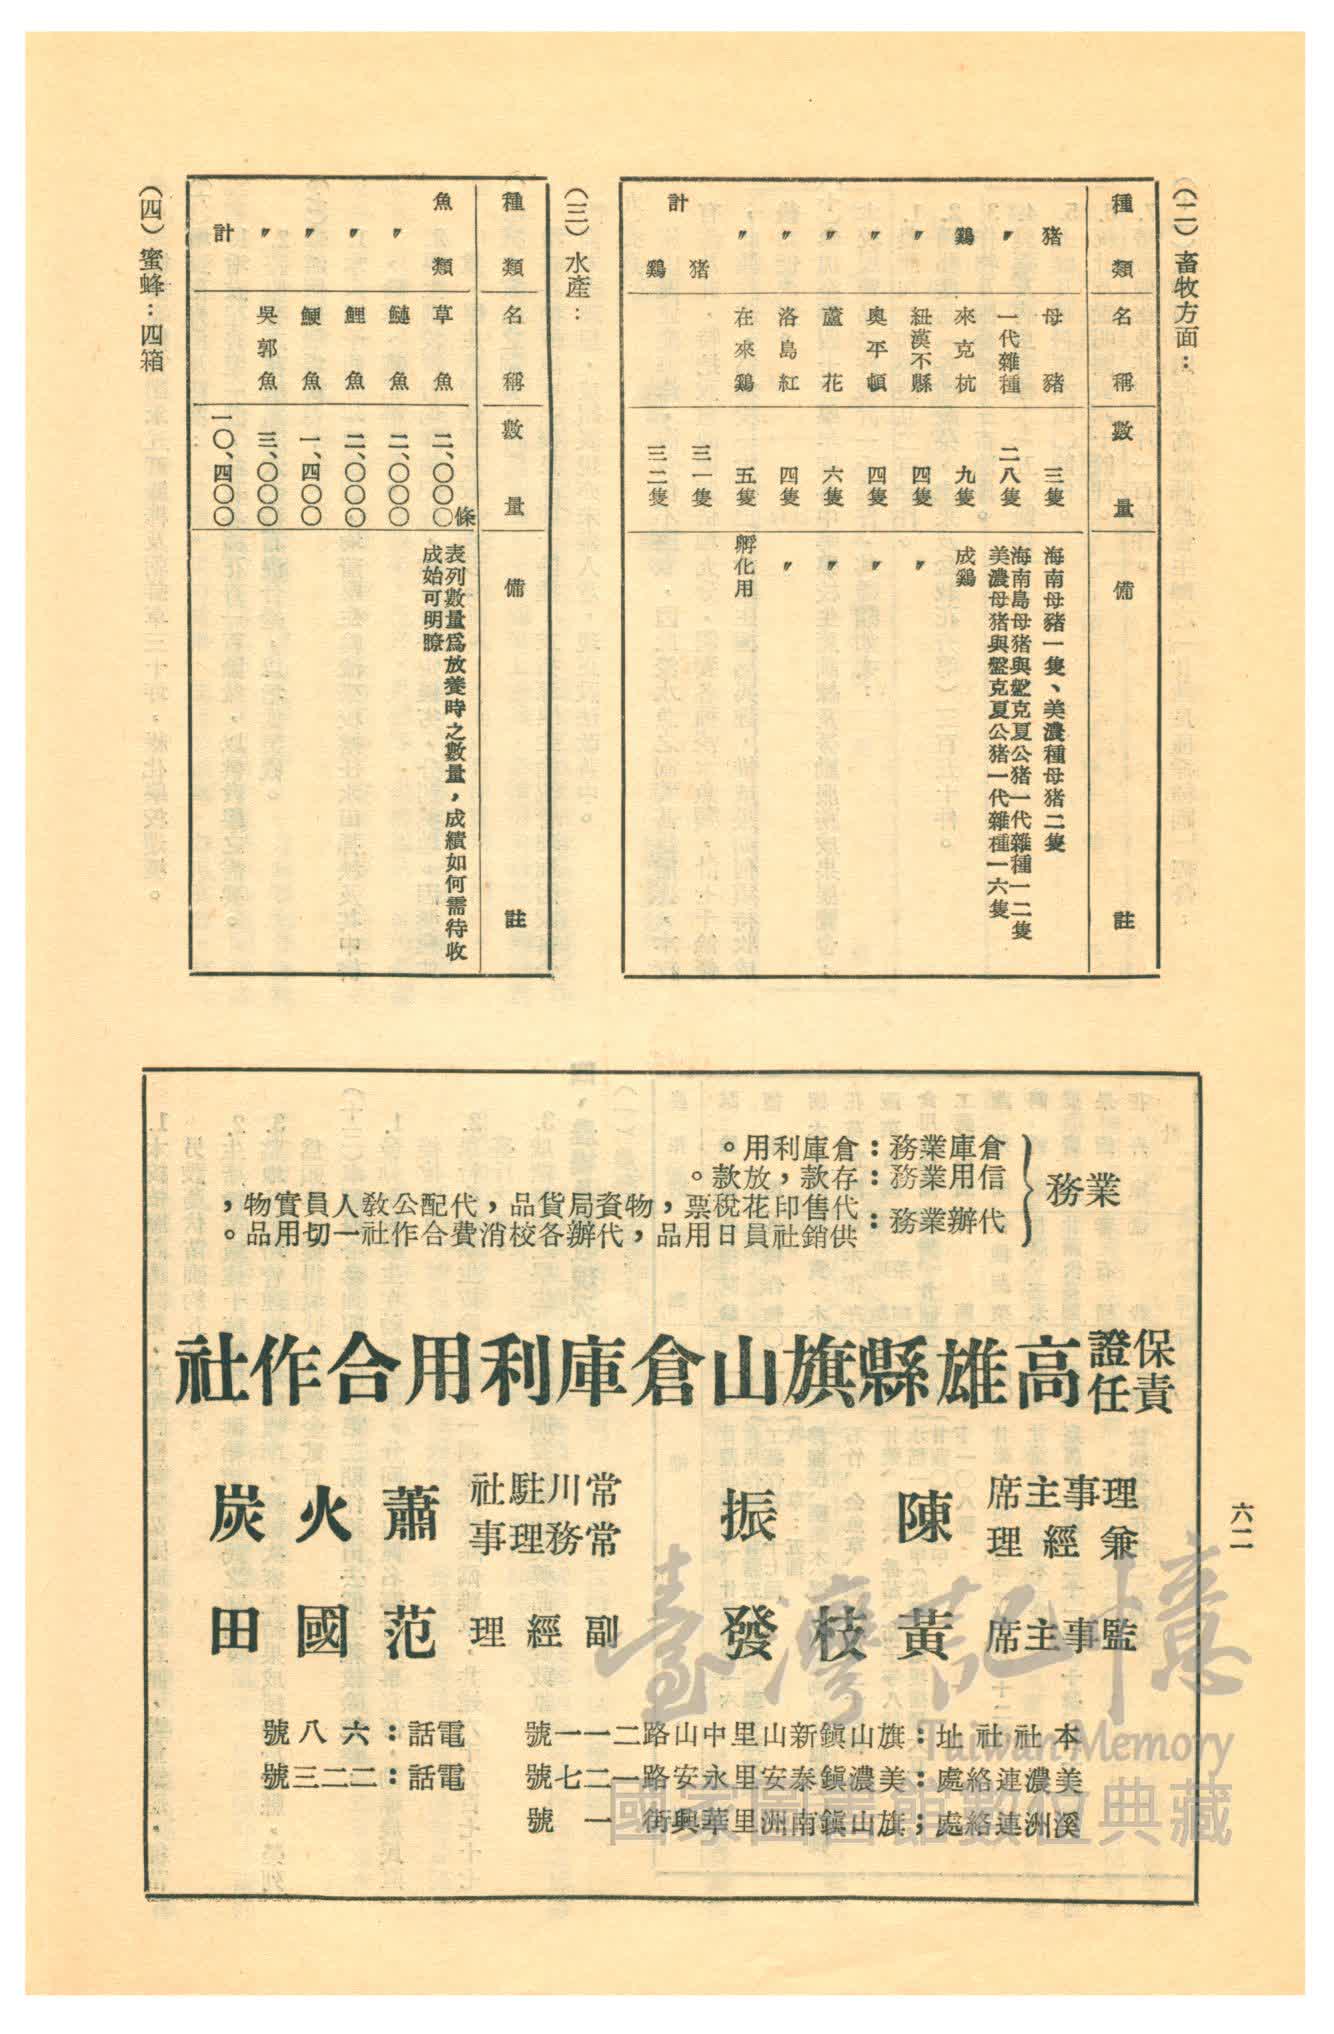 (二)畜牧方面：
種類 名稱 數量 備註
猪 母猪 三隻 海南母豬一隻、美濃種母猪二隻
〃 一代雜種 二八隻 海南島母猪與盤克夏公猪一代雜種一二隻
美濃母猪與盤克夏公猪一代雜種一六隻
鷄 來克杭 九隻 成鷄
〃 紐漢不縣 四隻 〃
〃 奥平頓 四隻 〃
〃 蘆花 六隻 〃
〃 洛島紅 四隻 〃
〃 在來鷄 五隻 孵化用
計 猪 三一隻
鷄 三二隻
(三)水產：
種類 名稱 數量 備註
魚類 草魚 二、〇〇〇條 表列數量爲放養時之數量，成績如何需待收
成始可明瞭
〃 鰱魚 二、〇〇〇
〃 鯉魚 二、〇〇〇
〃 鯁魚 一、四〇〇
〃 吳郭魚 三、〇〇〇
計 一〇、四〇〇
(四)蜜蜂：四箱
業務
倉庫業務：倉庫利用。
信用業務：存款，放款。
代辦業務：代售印花稅票，物資局貨品，代配公教人員實物，
供銷社員日用品，代辦各校消費合作社一切用品。
保證責任高雄縣旗山倉庫利用合作社
理事主席兼經理 陳振
常川駐社常務理事 蕭火炭
監事主席 黃枝發
副經理 范國田
本社社址：旗山鎮新山里中山路二一一號 電話：六八號
美濃連絡處：美濃鎮泰安里永安路一二七號 電話：二二三號
溪洲連絡處；旗山鎮南洲里華興街一號
六二
臺灣記憶
Taiwan Memory
國家圖書館數位典藏